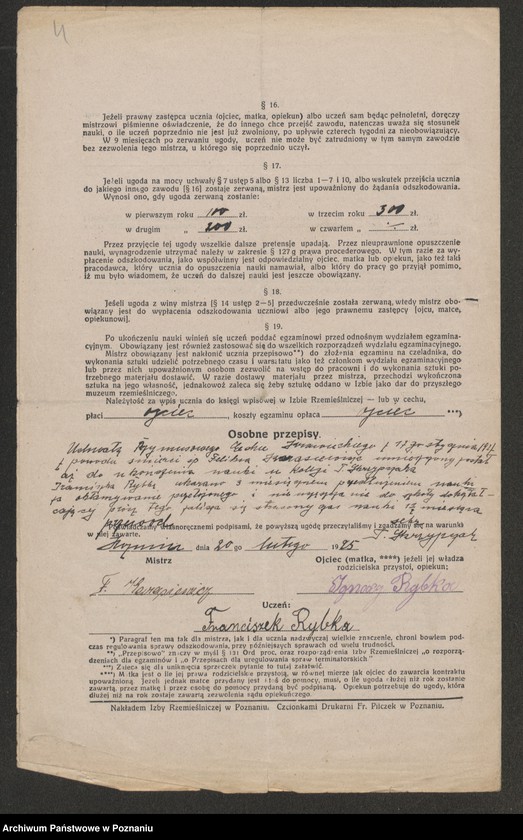 4
§ 16.
Jeżeli prawny zastępca ucznia (ojciec, matka, opiekun) albo uczeń sam będąc pełnoletni, doręczy
mistrzowi piśmienne oświadczenie, że do innego chce przejść zawodu, natenczas uważa się stosunek
nauki, o ile uczeń poprzednio nie jest już zwolniony, po upływie czterech tygodni za nieobowiązujący.
W 9 miesiącach po zerwaniu ugody, uczeń nie może być zatrudniony w tym samym zawodzie
bez zezwolenia tego mistrza, u którego się poprzednio uczył.
§ 17.
Jeżeli ugoda na mocy uchwały § 7 ustęp 5 albo § 13 liczba 1—7 i 10, albo wskutek przejścia ucznia
do jakiego innego zawodu [§ 16] zostaje zerwaną, mistrz jest upoważniony do żądania odszkodowania.
Wynosi ono, gdy ugoda zerwaną zostanie:
w pierwszym roku 100 zł. w trzecim roku 300 zł.
w drugim „ 200 zł. w czwartem „ -:- zł.
Przez przyjęcie tej ugody wszelkie dalsze pretensje upadają. Przez nieuprawnione opuszczenie
nauki, wynagrodzenie utrzymać należy w zakresie § 127 g prawa procederowego. W tym razie za wy-
płacenie odszkodowania, jako współwinny jest odpowiedzialny ojciec, matka lub opiekun, jako też taki
pracodawca, który ucznia do opuszczenia nauki namawiał, albo który do pracy go przyjął pomimo,
iż mu było wiadomem, że uczeń do dalszej nauki jest jeszcze obowiązany.
§ 18.
Jeżeli ugoda z winy mistrza [§ 14 ustęp 2—5] przedwcześnie została zerwaną, wtedy mistrz obo-
wiązany jest do wypłacenia odszkodowania uczniowi albo jego prawnemu zastępcy [ojcu, matce,
opiekunowi].
§ 19.
Po ukończeniu nauki winien się uczeń poddać egzaminowi przed odnośnym wydziałem egzamina-
cyjnym. Obowiązany jest również zastosować się do wszelkich rozporządzeń wydziału egzaminacyjnego.
Mistrz obowiązany jest nakłonić ucznia przepisowo**) do złożenia egzaminu na czeladnika, do
wykonania sztuki udzielić potrzebnego czasu i warsztatu jako też członkom wydziału egzaminacyjnego
lub przez nich upoważnionym osobom zezwolić na wstęp do pracowni i do wykonania sztuki po-
trzebnego materjału dostawić. W razie dostawy materjału przez mistrza, przechodzi wykończona
sztuka na jego własność, jednakowoż zaleca się żeby sztukę oddano w Izbie jako dar do przyszłego
muzeum rzemieślniczego.
Należytość za wpis ucznia do księgi wpisowej w Izbie Rzemieślniczej — lub w cechu,
płaci ojciec, koszty egzaminu opłaca ojciec ***)
Osobne przepisy.
Uchwałą Przymusowego Cechu
nauki u kolegi T. Skrzypczaka
Franciszka Rybkę
nauki
i nie
do szkoły dokształ-
cającej
nauki
własnoręcznemi podpisami, że powyższą ugodę przeczytaliśmy i zgadzamy się na warunki
w niej zawarte.
T. Skrzypczak
dnia 20 go lutego 1925
Mistrz
Ojciec (matka, ****) jeżeli jej władza
rodzicielska przystoi, opiekun;
Ignacy Rybka
Uczeń:
Franciszek Rybka
*) Paragraf ten ma tak dla mistrza, jak i dla ucznia nadzwyczaj wielkie znaczenie, chroni bowiem pod-
czas regulowania sprawy odszkodowania, przy późniejszych sprawach od wielu trudności.
**) „Przepisowo" znaczy w myśl § 131 Ord. proc. oraz rozporządzenia Izby Rzemieślniczej „o rozporzą-
dzeniach dla egzaminów i „o Przepisach dla uregulowania spraw terminatorskich."
***) Zaleca się dla uniknięcia sprzeczek pytanie to tutaj załatwić.
****) Matka jest o ile jej prawa rodzicielskie przystoją, w równej mierze jak ojciec do zawarcia kontraktu
upoważnioną. Jeżeli jednak matce przydany jest ktoś do pomocy, musi, o ile ugoda dłużej niż rok zostanie
zawartą, przez matkę i przez osobę do pomocy przydaną być podpisaną. Opiekun potrzebuje do ugody, która
dłużej niż na rok zostaje zawartą zezwolenia rządu opiekuńczego.
Nakładem Izby Rzemieślniczej w Poznaniu. Czcionkami Drukarni Fr. Pilczek w Poznaniu.
Archiwum Państwowe w Poznaniu